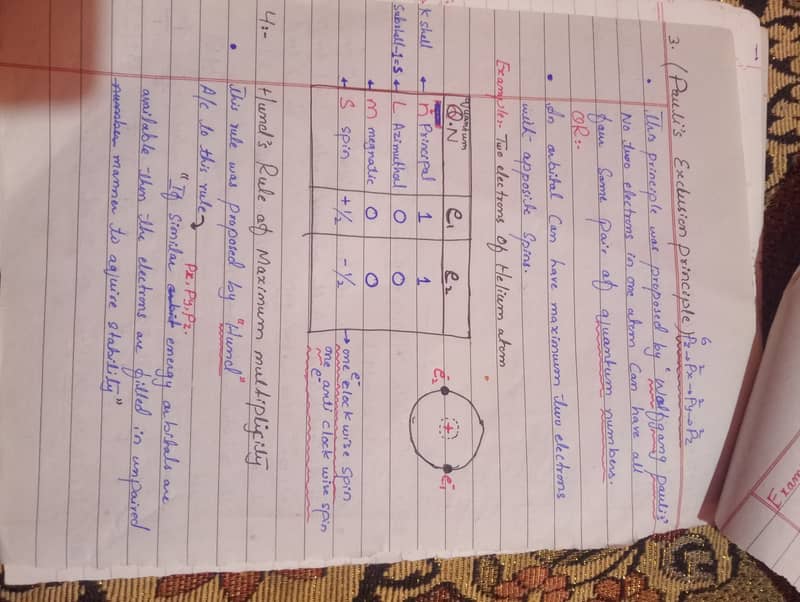 3. (Pauli's Exclusion principle)
P⁶z→Px²→Py²→Pz²
• This principle was proposed by "Wolfgang Pauli's"
No two electrons in one atom Can have all
four Same pair of quantum numbers.
OR:-
• An orbital Can have maximum two electrons
with opposite Spins.
Example:- Two electrons of Helium atom
quantum
Q.N e1 e2
K shell ← n Principal 1 1
Subshell-1=S ← L Azimuthal 0 0
← m megnatic 0 0
← S spin +1/2 -1/2
e⁻2 + e⁻1
→ one e⁻ clock wise spin
one anti clock wise spin
e⁻
4:- Hund's Rule of Maximum multiplicity
• This rule was proposed by "Hund"
A/c to this rule→
Px, Py, Pz.
"If Similar energy orbitals are
available then the electrons are filled in unpaired
manner to aquire stability"
Exam